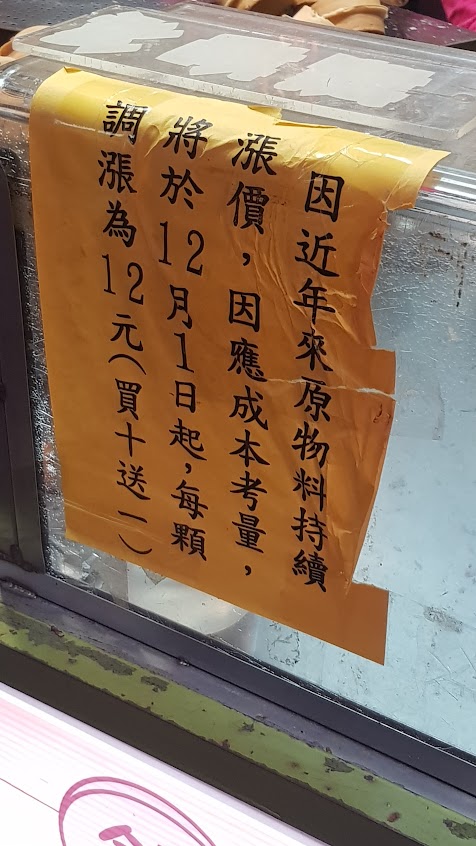 因近年來原物料持續
漲價，因應成本考量，
將於12月1日起，每顆
調漲為12元（買十送一）